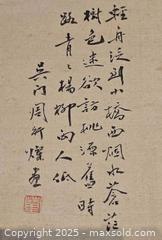 輕舟泛到小橋西烟水蒼茫
樹色迷欲訪桃源舊時
路青々楊柳向人低
吳門周
畫
www.bidders.com.au